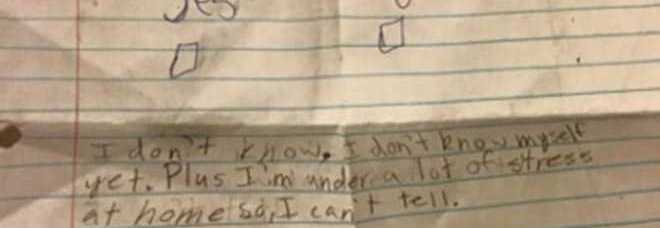 yes
I don't know. I don't know myself
yet. Plus I'm under a lot of stress
at home so, I can't tell.